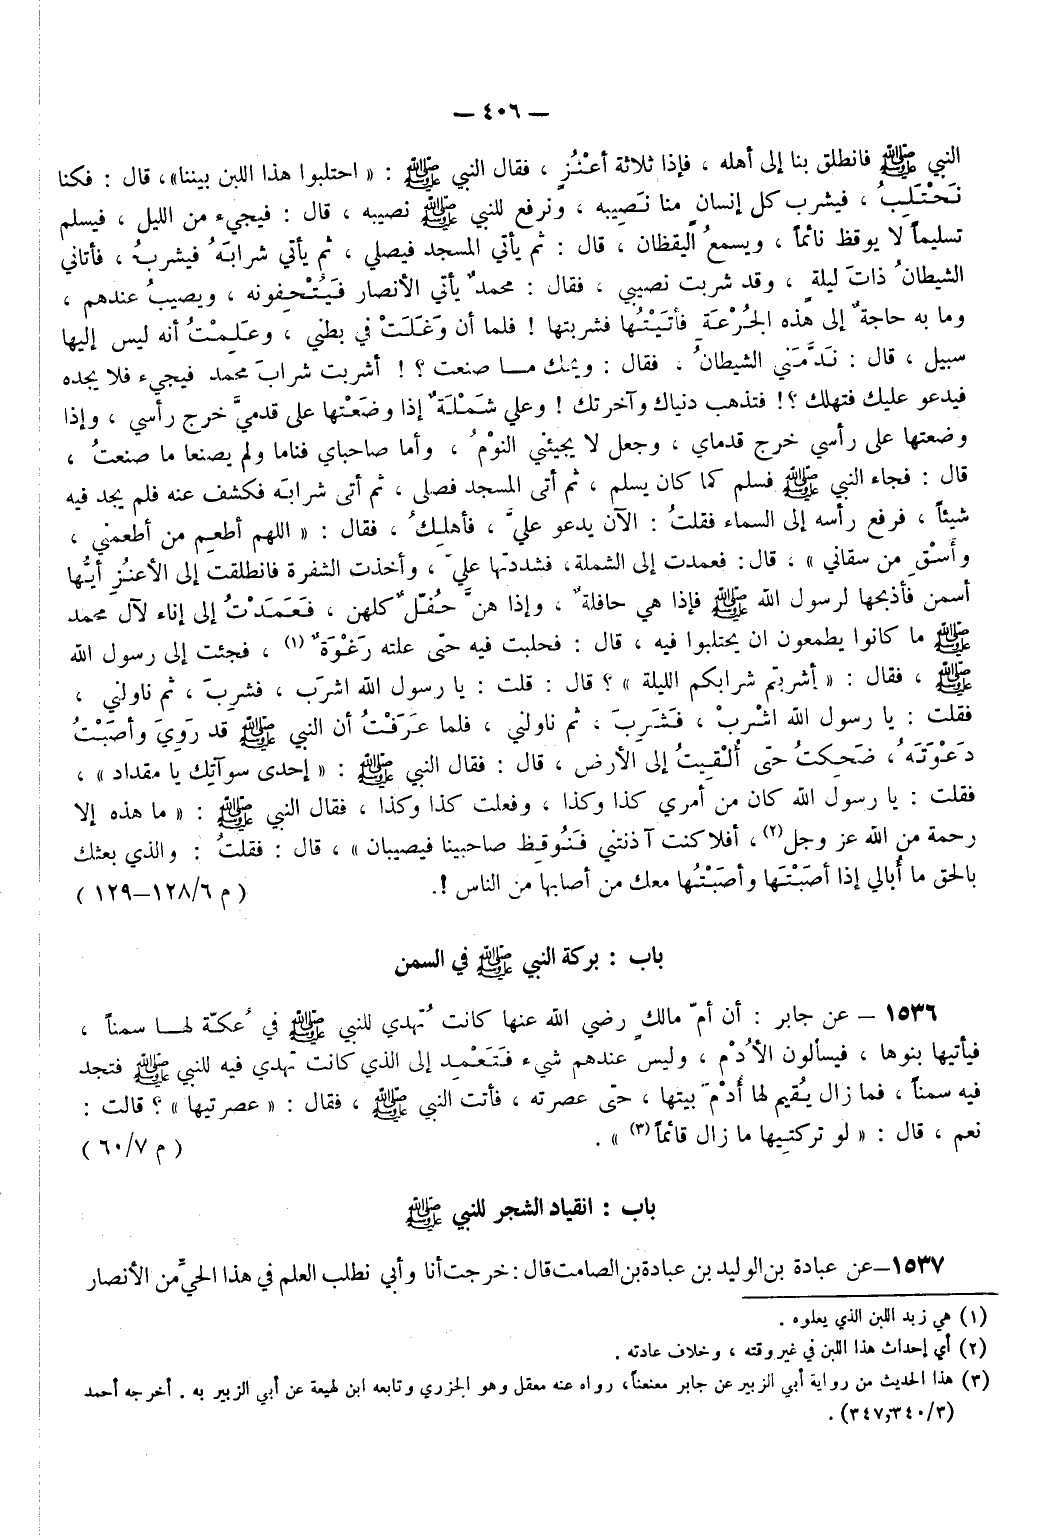 — ٤٠٦ —
النبي ﷺ فانطلق بنا إلى أهله ، فإذا ثلاثة أعْنُزٍ ، فقال النبي ﷺ : « احتلبوا هذا اللبن بيننا»، قال : فكنا
نَحْتَلِبُ ، فيشرب كل إنسان منا نَصيبه ، ونرفع للنبي ﷺ نصيبه ، قال : فيجيء من الليل ، فيسلم
تسليماً لا يوقظ نائماً ، ويسمعُ اليقظان ، قال : ثم يأتي المسجد فيصلي ، ثم يأتي شرابَهُ فيشربُ ، فأتاني
الشيطانُ ذاتَ ليلةٍ ، وقد شربت نصيبي ، فقال : محمدٌ يأتي الأنصار فَيُتْحِفونه ، ويصيبُ عندهم ،
وما به حاجةٌ إلى هذه الجُرْعَةِ فأتَيْتُها فشربتها ! فلما أن وَغَلَتْ في بطني ، وعَلِمْتُ أنه ليس إليها
سبيل ، قال : نَدَّمَني الشيطانُ . فقال : ويحك مـا صنعت ؟ ! أشربت شرابَ محمد فيجيء فلا يجده
فيدعو عليك فتهلك ؟! فتذهب دنياك وآخرتك ! وعلي شَمْلَةٌ إذا وضَعْتها على قدميَّ خرج رأسي ، وإذا
وضعتها على رأسي خرج قدماي ، وجعل لا يجيئني النوْمُ ، وأما صاحباي فناما ولم يصنعا ما صنعتُ ،
قال : فجاء النبي ﷺ فسلم كما كان يسلم ، ثم أتى المسجد فصلى ، ثم أتى شرابَه فكشف عنه فلم يجد فيه
شيئاً ، فرفع رأسه إلى السماء فقلتُ : الآن يدعو عليَّ ، فأهلِكُ ، فقال : « اللهم أطعِم من أطعمني ،
وأَسْقِ من سقاني » ، قال: فعمدت إلى الشملة، فشددتها عليَّ ، وأخذت الشفرة فانطلقت إلى الأعنُزِ أيُّها
أسمن فأذبحها لرسول الله ﷺ فإذا هي حافلةٌ ، وإذا هنَّ حُفّلٌ كلهن ، فَعَمَدْتُ إلى إناء لآل محمد
ﷺ ما كانوا يطمعون ان يحتلبوا فيه ، قال : فحلبت فيه حتى علته رَغْوَةٌ (١) ، فجئت إلى رسول الله
ﷺ ، فقال : « أشربتم شرابكم الليلة » ؟ قال : قلت : يا رسول الله اشرَب ، فشربَ ، ثم ناولني ،
فقلت : يا رسول الله اشْربْ ، فَشَرِبَ ، ثم ناولني ، فلما عَرَفْتُ أن النبي ﷺ قد رَوِيَ وأصَبْتُ
دَعْوَتَهُ ، ضَحِكتُ حتى أُلْقِيتُ إلى الأرض ، قال : فقال النبي ﷺ : « إحدى سوآتِك يا مقداد » ،
فقلت : يا رسول الله كان من أمري كذا وكذا ، وفعلت كذا وكذا ، فقال النبي ﷺ : « ما هذه إلا
رحمة من الله عز وجل(٢) ، أفلا كنت آذنتني فَنُوقِظ صاحبينا فيصيبان » ، قال : فقلتُ : والذي بعثك
بالحق ما أُبالي إذا أصَبْتَها وأصَبْتُها معك من أصابها من الناس !. ( م ١٢٨/٦–١٢٩ )
باب : بركة النبي ﷺ في السمن
١٥٣٦ – عن جابر : أن أمّ مالكٍ رضي الله عنها كانت تُهدي للنبي ﷺ في عُكّة لهـا سمناً ،
فيأتيها بنوها ، فيسألون الأُدْم ، وليس عندهم شيء فَتَعْمِد إلى الذي كانت تهدي فيه للنبي ﷺ فتجد
فيه سمناً ، فما زال يُقيم لها أُدْمَ بيتها ، حتى عصرته ، فأتت النبي ﷺ ، فقال : « عصرتيها » ؟ قالت :
نعم ، قال : « لو تركتيها ما زال قائماً(٣) » . ( م ٦٠/٧ )
باب : انقياد الشجر للنبي ﷺ
١٥٣٧–عن عبادة بن الوليد بن عبادة بن الصامت قال : خرجت أنا وأبي نطلب العلم في هذا الحيّ من الأنصار
(١) هي زبد اللبن الذي يعلوه .
(٢) أي إحداث هذا اللبن في غير وقته ، وخلاف عادته .
(٣) هذا الحديث من رواية أبي الزبير عن جابر معنعناً، رواه عنه معقل وهو الجزري وتابعه ابن لهيعة عن أبي الزبير به . أخرجه أحمد
(٣٤٠/٣و٣٤٧) .